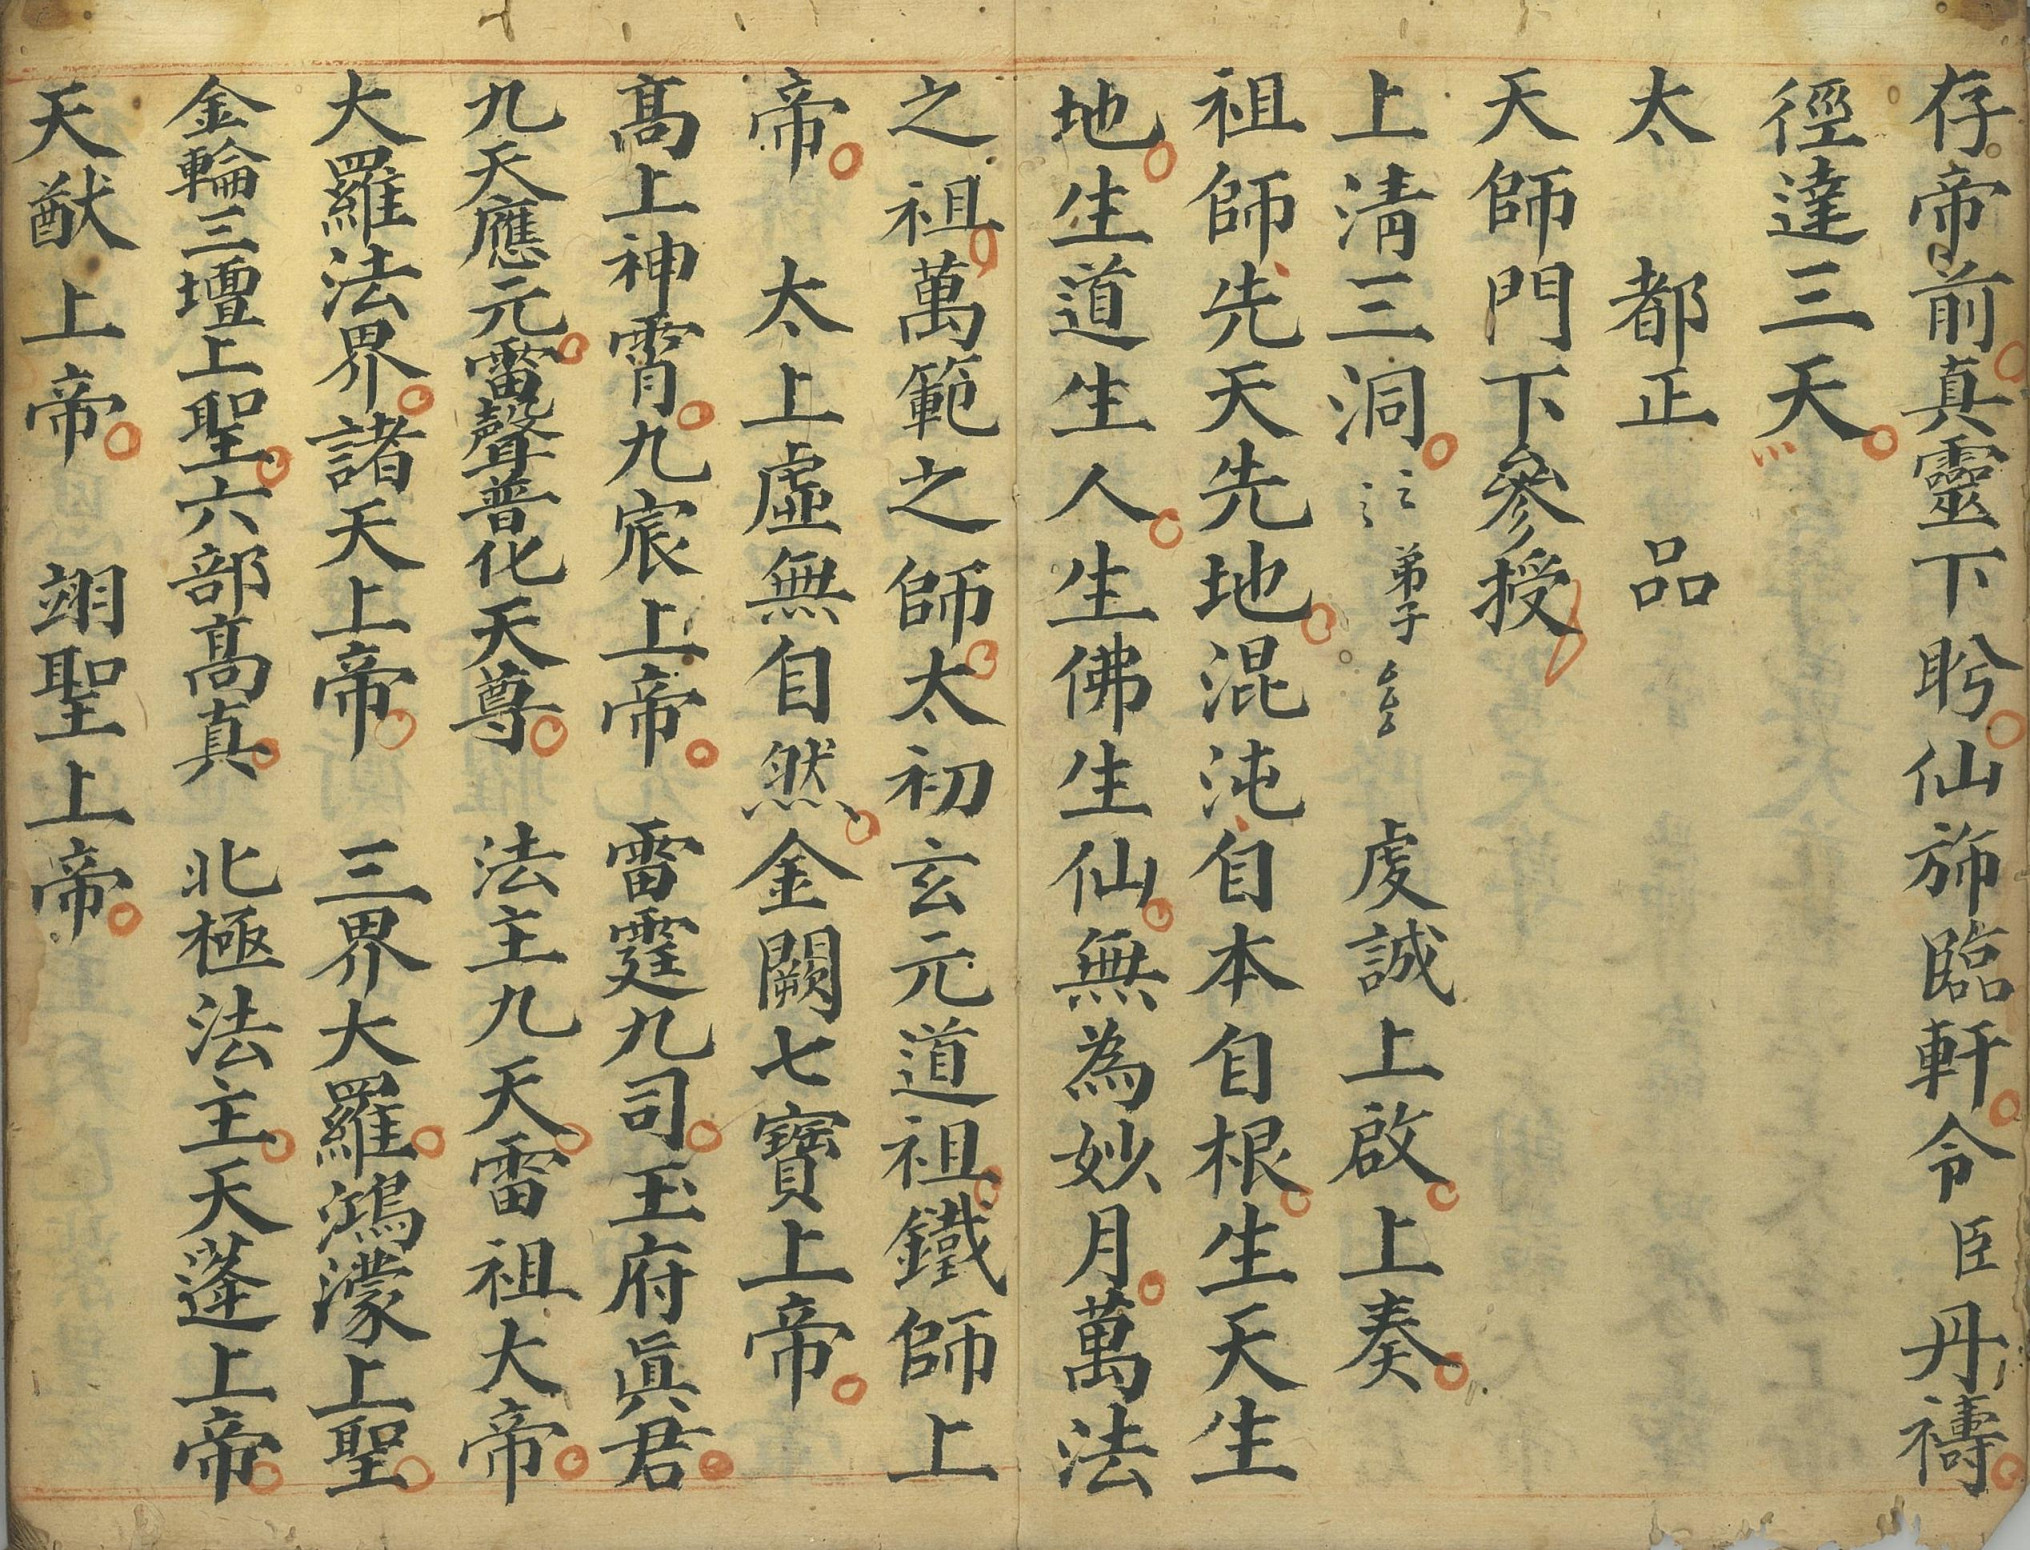 存帝前真靈下盻仙斾臨軒令臣丹禱
徑達三天
太都正品
天師門下參授
上清三洞 弟子 虔誠上啟上奏
祖師先天先地混沌自本自根生天生
地生道生人生佛生仙無為妙月萬法
之祖萬範之師太初玄元道祖鐵師上
帝 太上虛無自然金闕七寶上帝
髙上神霄九宸上帝 雷霆九司玉府眞君
九天應元雷聲普化天尊 法主九天雷祖大帝
大羅法界諸天上帝 三界大羅鴻濛上聖
金輪三壇上聖六部髙真 北極法主天蓬上帝
天猷上帝 翊聖上帝